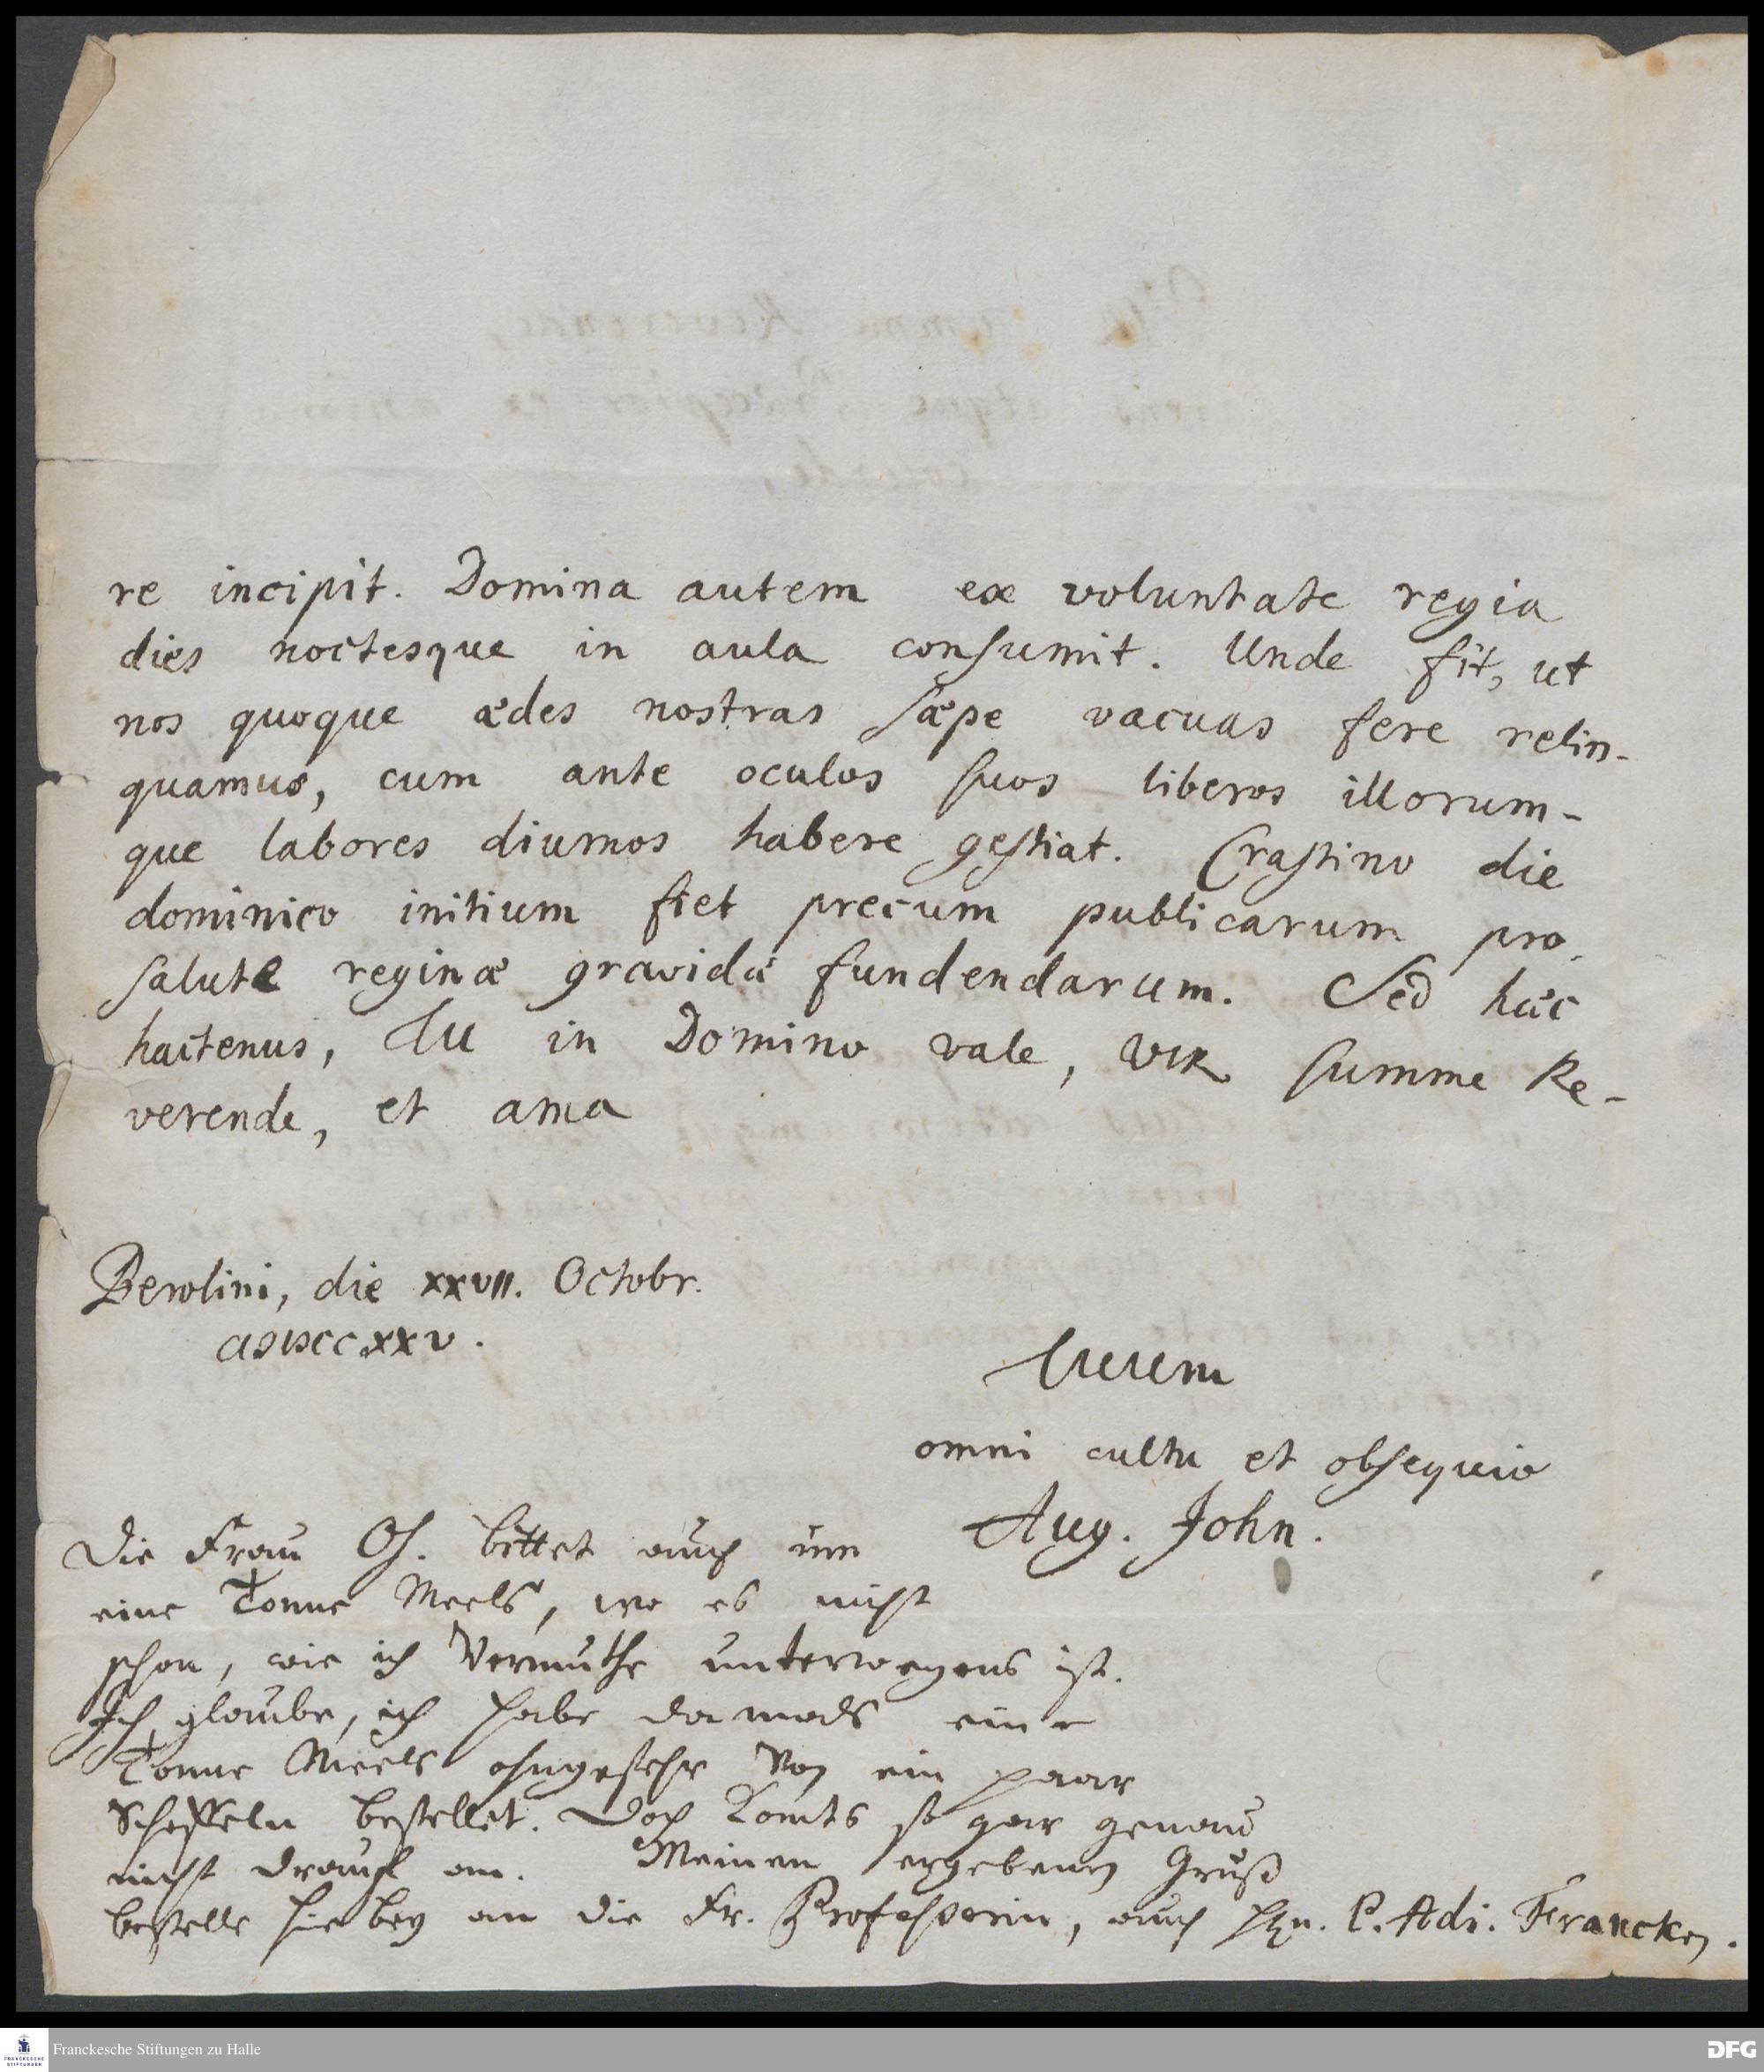 re incipit. Domina autem ex voluntate regia
dies noctesque in aula consumit. Unde fit, ut
nos quoque ædes nostras sæpe vacuas fere relin-
quamus, cum ante oculos suos liberos illorum-
que labores diurnos habere gestiat. Crastino die
dominico initium fiet precum publicarum pro
salute reginæ gravidæ fundendarum. Sed hæc
hactenus, Tu in Domino vale, VIR summe Re-
verende, et ama
Berolini, die xxvII. Octobr.
CIƆIƆCCXXV.
Tuum
omni cultu et obsequio
Aug. John.
Die Frau Ob. bittet auch um
eine Tonne Meels, wo es nicht
schon, wie ich vermuthe unterwegens ist.
Ich glaube, ich habe damals eine
Tonne Meels ohngefehr von ein paar
Scheffeln bestellet. Doch komts so gar genau
nicht drauf an. Meinen ergebenen Gruß
bestelle hiebey an die Fr. Professorin, auch Hn. P. Adi. Francken.
Franckesche Stiftungen zu Halle
FRANCKESCHE
STIFTUNGEN
DFG